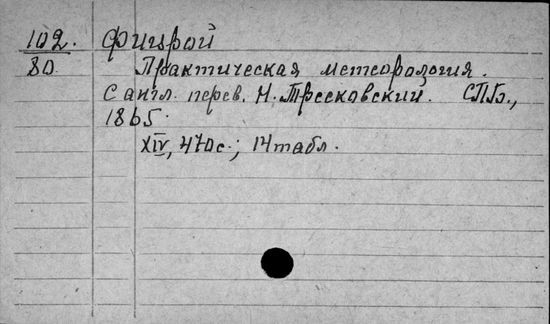 102. Фицрой
80. Практическая метеорология.
С англ. перев. Н. Тресковский. СПб.,
1865.
XIV, 470с.; 14 табл.